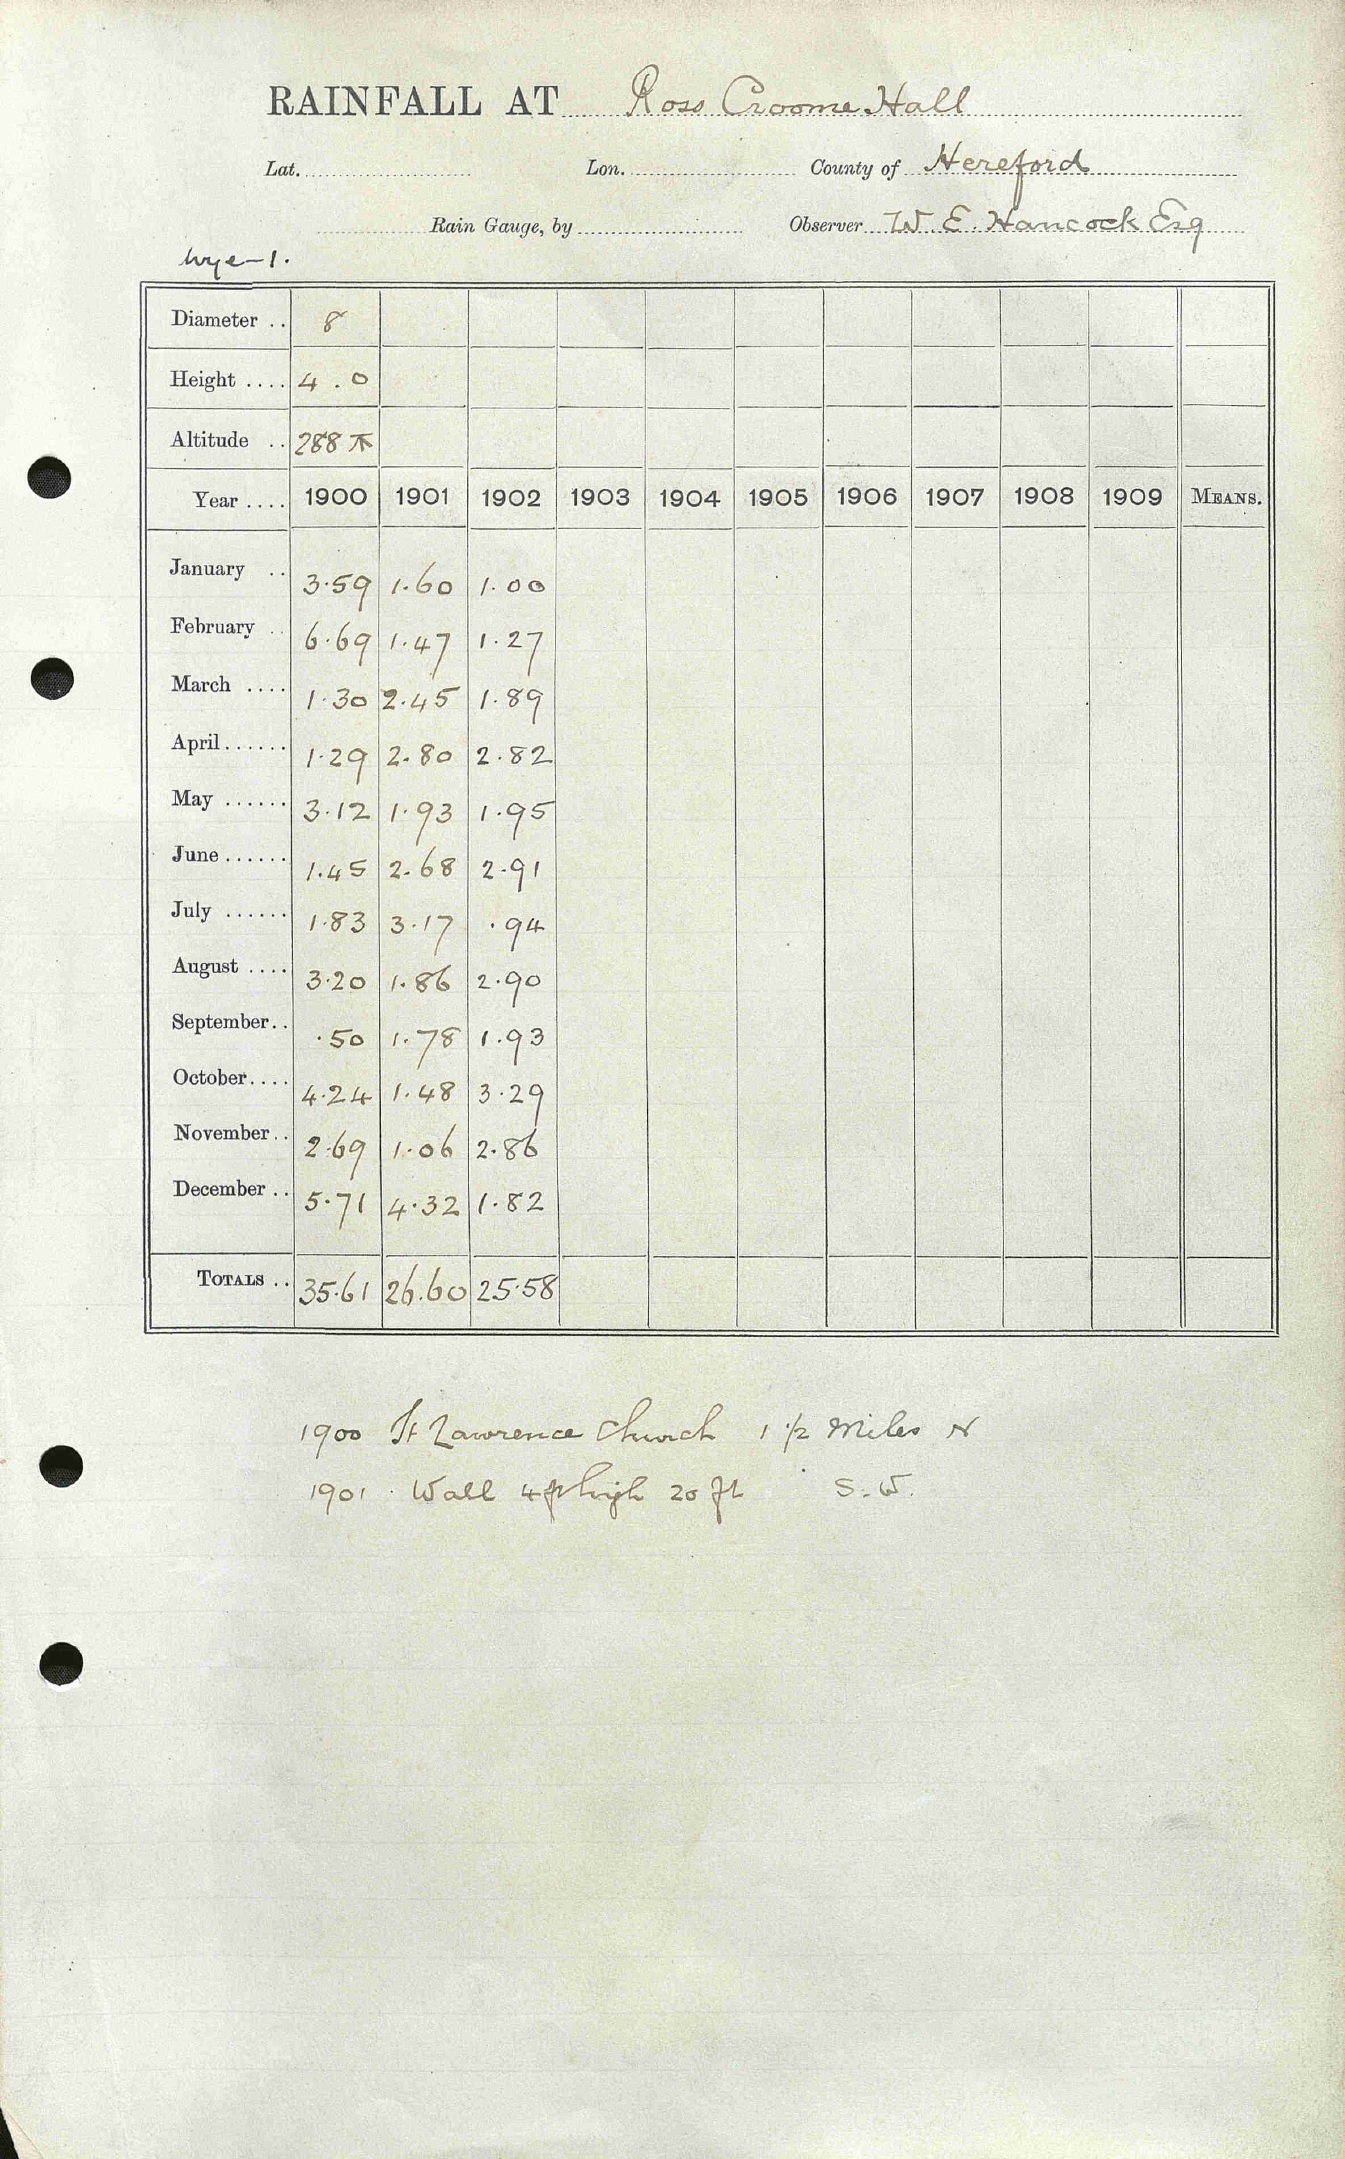 RAINFALL AT Ross Croome Hall
Lat. Lon. County of Hereford
Rain Gauge, by Observer W. E. Hancock Esq
Wye-1.
Diameter .. 8
Height .... 4 . 0
Altitude .. 288
Year .... 1900 1901 1902 1903 1904 1905 1906 1907 1908 1909 MEANS.
January .. 3.59 1.60 1.00
February .. 6.69 1.47 1.27
March .... 1.30 2.45 1.89
April...... 1.29 2.80 2.82
May ...... 3.12 1.93 1.95
June...... 1.45 2.68 2.91
July ...... 1.83 3.17 .94
August .... 3.20 1.86 2.90
September.. .50 1.78 1.93
October.... 4.24 1.48 3.29
November.. 2.69 1.06 2.86
December .. 5.71 4.32 1.82
TOTALS .. 35.61 26.60 25.58
1900 St Lawrence Church 1 1/2 Miles N
1901 Wall 4ft high 20 ft S.W.